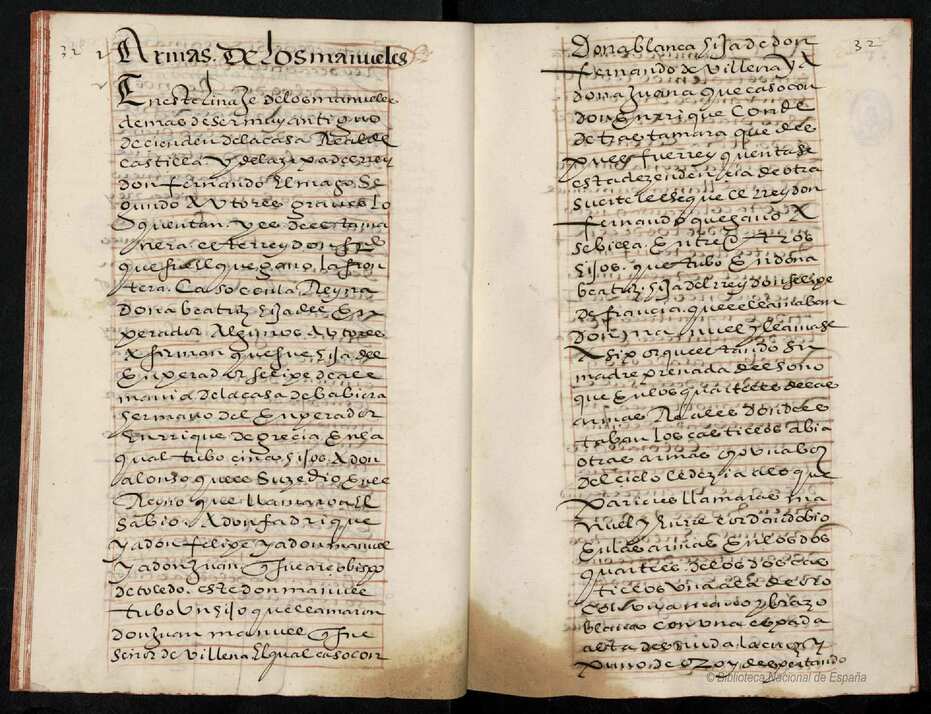 32
Armas. De los manueles
En este linaje de los manueles
demas de ser muy antiguo
deciende de la casa Real de
castilla y de la zepa del rrey
don fernando El mago Se
gundo Autores graves lo
quentan. y es de esta ma
nera. este rrey don frdo
que fue El que gano. la fron
tera. Caso con la Reyna
Dona beatriz hija del En
perador Algunos Autores
Afirman que fue, hija del
Enperador felipe de ale
mania de la casa de babiera
hermano del Enperador
Enrrique de grecia En la
qual tubo cinco hijos. A don
alonso que le Suzedio En el
Reyno que llamaron El
Sabio. A don fadrique
y a don felipe y a don manuel
y a don Juan que fue arcobispo
de toledo. este don manuel
tubo Un hijo que llamaron
don Juan manuel que fue
señor de Villena El qual caso con
32
Dona blanca hija de don
fernando de Villena y
dona Juana que caso con
don Enrrique Conde
de trastamara que des
pues fue rrey quentase
esta dezendencia de otra
suerte es que el rrey don
fernando que gano A
Sebilla. Entre otros
hijos. que tubo En dona
beatriz hija del rrey don felipe
de francia. que llamaban
don manuel y llamase
Asi porque estando Su
madre prenada del Sono
que En los quarteles de las
armas Reales donde es
taban los castillos abia
otras armas y que Una boz
del cielo le dezia a lo que
parieres llamaras ma
nuel y Enrrecordandobio
En las armas En los dos
quarteles de los dos cas
tillos Una ala de oro
con su mano y brazo
blanco con una espada
alta desnuda la cruz y
puno de oro y despertando
© Biblioteca Nacional de España